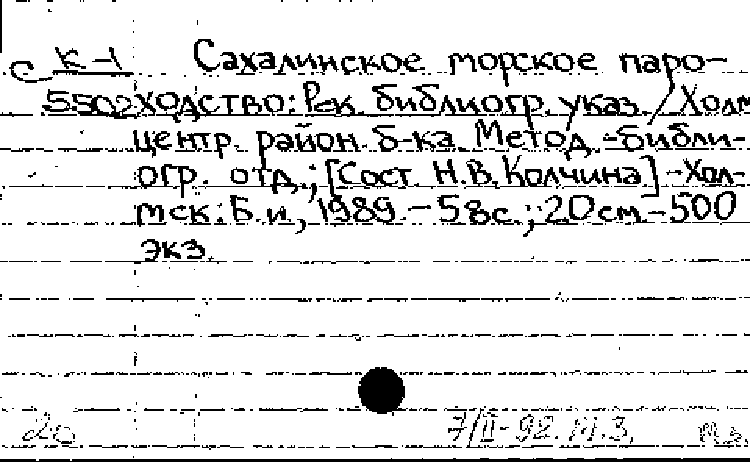 С К-1 Сахалинское морское паро-
5502 ходство: Рек. библиогр. указ. / Холм
центр. район. б-ка. Метод.-библи-
огр. отд.; [Сост. Н.В. Колчина] - Хол-
мск: Б.и., 1989. - 58с.; 20см. - 500
экз.
20 7/II-92. М.З.